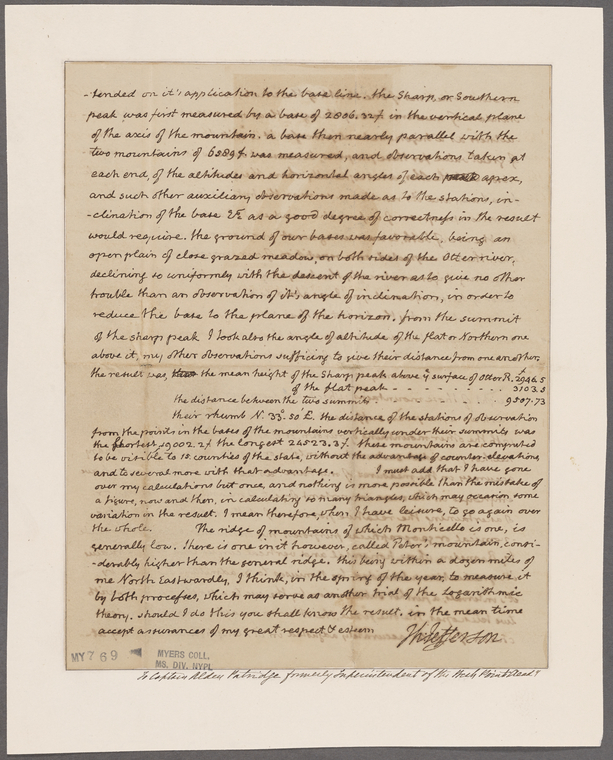 -tended on it's application to the base line. the Sharp, or Southern
peak was first measured by a base of 2806.32 f. in the vertical plane
of the axis of the mountain. a base then nearly parallel with the
two mountains of 6589 f. was measured, and observations taken at
each end, of the altitudes and horizontal angles of each apex,
and such other auxiliary observations made as to the stations, in-
-clination of the base &c. as a good degree of correctness in the result
would require. the ground of our bases was favorable, being an
open plain of close grazed meadow, on both sides of the Otter river,
declining so uniformly with the descent of the river as to give no other
trouble than an observation of it's angle of inclination, in order to
reduce the base to the plane of the horizon. from the summit
of the sharp peak I took also the angle of altitude of the flat or Northern one
above it, my other observations sufficing to give their distance from one another.
the result was, the mean height of the Sharp peak above ye surface of Otter R. 2946.5
of the flat peak - - - - - - - 3103.5
the distance between the two summits - - - - - 9507.73
their rhumb N. 33° 50' E. the distance of the stations of observation
from the points in the bases of the mountains vertically under their summits was
the shortest 19002.2 f. the longest 24523.3 f. these mountains are computed
to be visible to 15. counties of the state, without the advantage of counter-elevations,
and to several more with that advantage. I must add that I have gone
over my calculations but once, and nothing is more possible than the mistake of
a figure, now and then, in calculating so many triangles, which may occasion some
variation in the result. I mean therefore, when I have leisure, to go again over
the whole. The ridge of mountains of which Monticello is one, is
generally low. there is one in it however, called Peter's mountain, consi-
-derably higher than the general ridge. this being within a dozen miles of
me North Eastwardly, I think, in the spring of the year, to measure it
by both processes, which may serve as another trial of the Logarithmic
theory. should I do this you shall know the result. in the mean time
accept assurances of my great respect & esteem
Th: Jefferson
MY 769
MYERS COLL.
MS. DIV. NYPL
To Captain Alden Patridge formerly Superintendent of the West Point